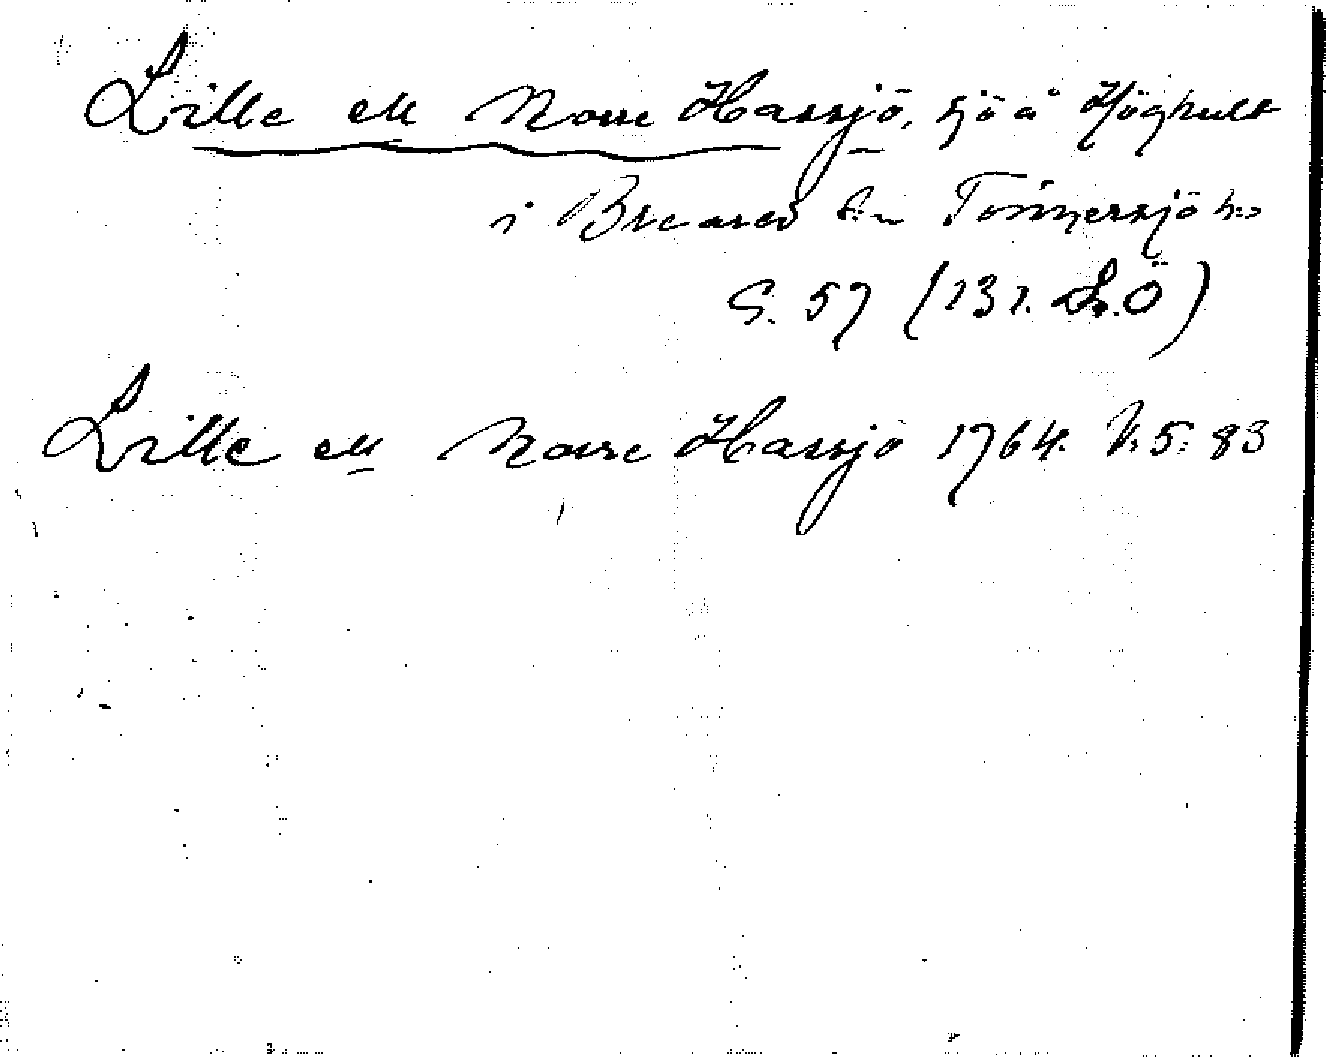 Lille ell Norre Harsjö, sjö å Höghult
i Breared sn Tönnersjö hd
S. 57 (131. L.Ö)
Lille ell Norre Harsjö 1764. V:5:83